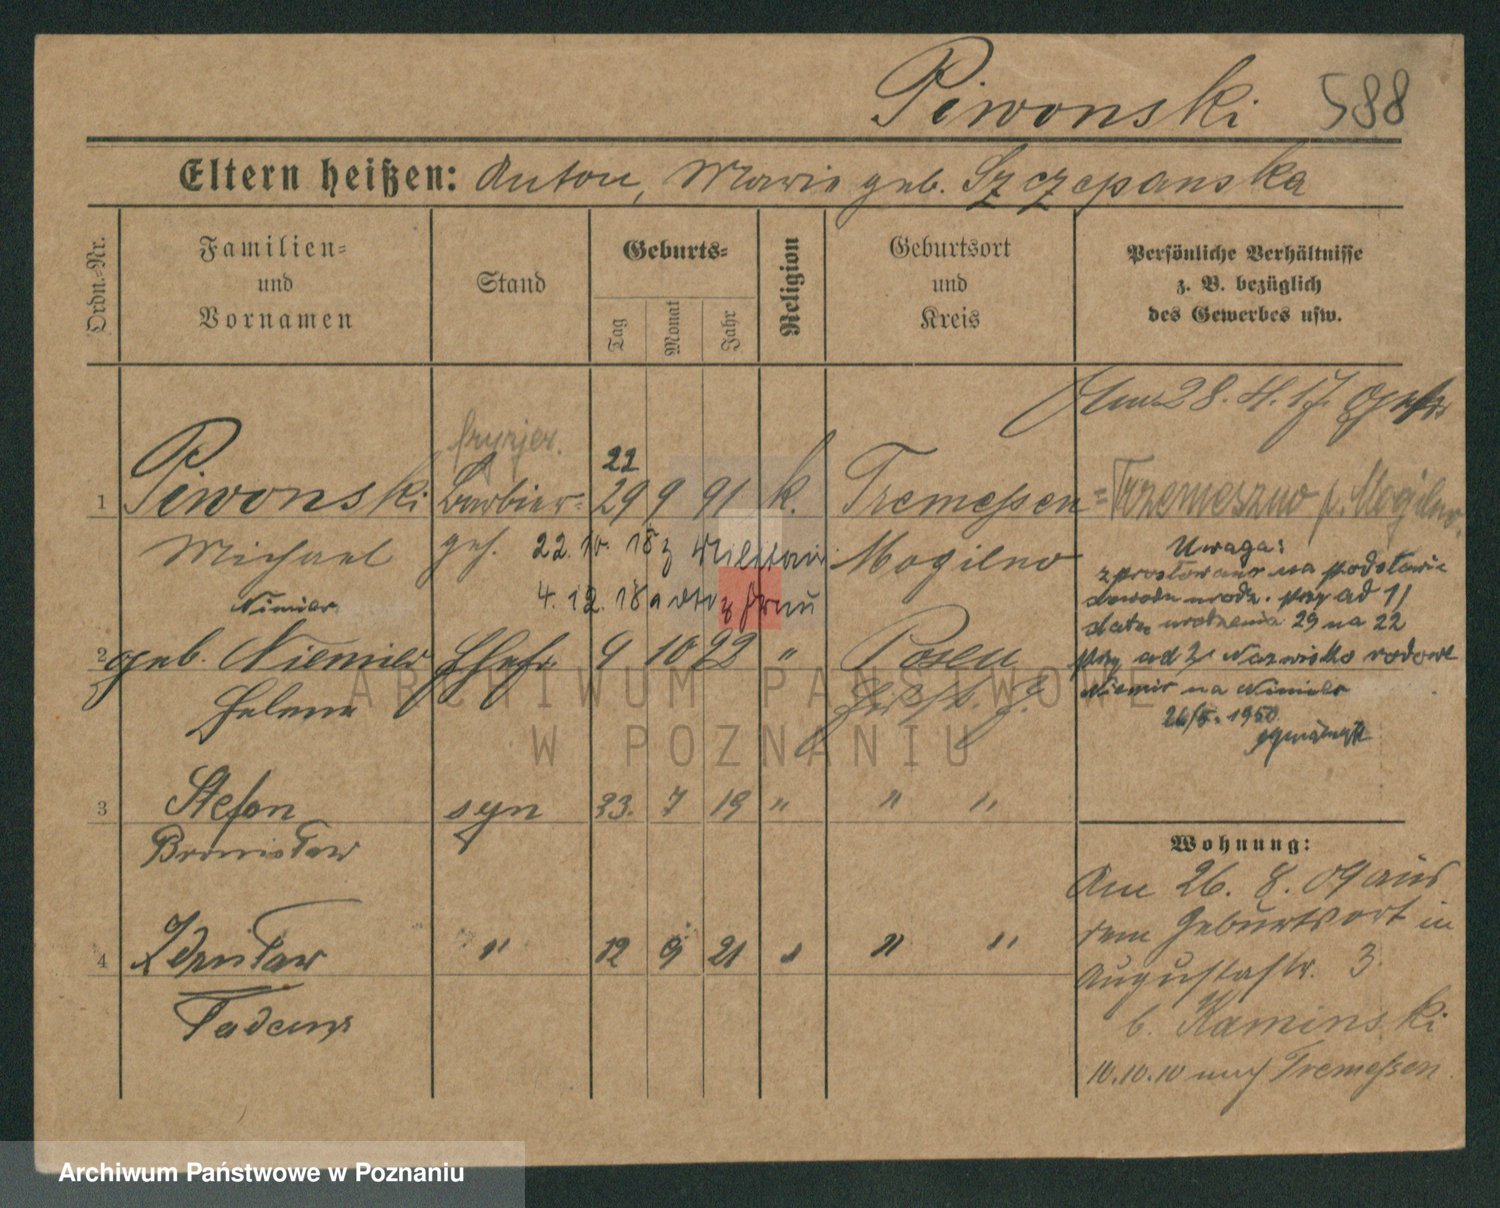 Piwonski 588
Eltern heißen: Anton, Marie geb. Szczepanska
Ordn.-Nr.
Familien-
und
Vornamen
Stand
Geburts-
Tag
Monat
Jahr
Religion
Geburtsort
und
Kreis
Persönliche Verhältnisse
z. B. bezüglich
des Gewerbes usw.
28. 4. 17.
fryzjer.
22
1 Piwonski Barbier 29 9 91 k. Tremessen = Trzemeszno p. Mogilno
Michael geh. 22. 10. 18 z Militair Mogilno
Uwaga:
sprostowano na podstawie
dowodu urodz. przy ad 1/
datę urodzenia 29 na 22
przy ad 2/ Nazwisko rodowe
Niemir na Nimier
26/5. 1950
4. 12. 18 z
Nimier
2 geb. Niemier Ehefr. 9 10 92 " Posen
Helena
3 Stefan syn 23. 7 19 " " "
Bronisław
4 Zdzisław " 12 9 21 " " "
Tadeusz
Wohnung:
Am 26. 8. 09 aus
dem Geburtsort in
Augustastr. 3.
b. Kaminski
10.10.10 nach Tremessen
ARCHIWUM PAŃSTWOWE
W POZNANIU
Archiwum Państwowe w Poznaniu